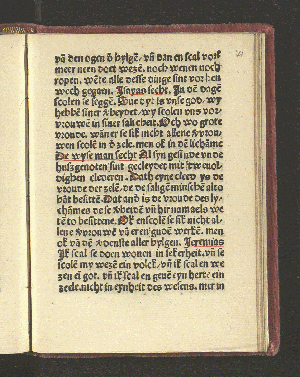 vñ den ogen d hylgē. vñ dan en scal vorß
meer neen doet wezē. noch wenen noch
ropen. wēte alle desse dinge sint vorhen
woch gegaen. Jsayas secht. Jn dē dagē
scolen se segge. Sue dyt is vnse god. wy
hebbē siner v̄beydet. wy scolen vns vor
vrouwē in siner salicheit. Och wo grote
vroude. wāner se sik nicht allene v̄vrou
wen scolē in d zele. men ok in dē lichāme
De wyse man secht Al syn gesinde vn̄ de
husgenoten sint gecleydet mit tweuol
dighen clederen. Dath eyne cleed ys de
vroude der zelē. de de salige minschē alto
hāt besittē. Dat and is de vroude des ly
chāmes de se v̄beidē vn̄ hir namaels we
tē to besittene. Ok en scolē se sik nicht al
lene v̄vrouwē vā eren gudē werkē. men
ok vā dē v̄denste aller hylgen. Jeremias
Jk scal se doen wonen in sekerheit. vn̄ se
scolē my wezē ein volck. vn̄ ik scal en we
zen ei got. vn̄ ik scal en geuē eyn herte ein
zede. nicht in eynheit des wesens. mer in